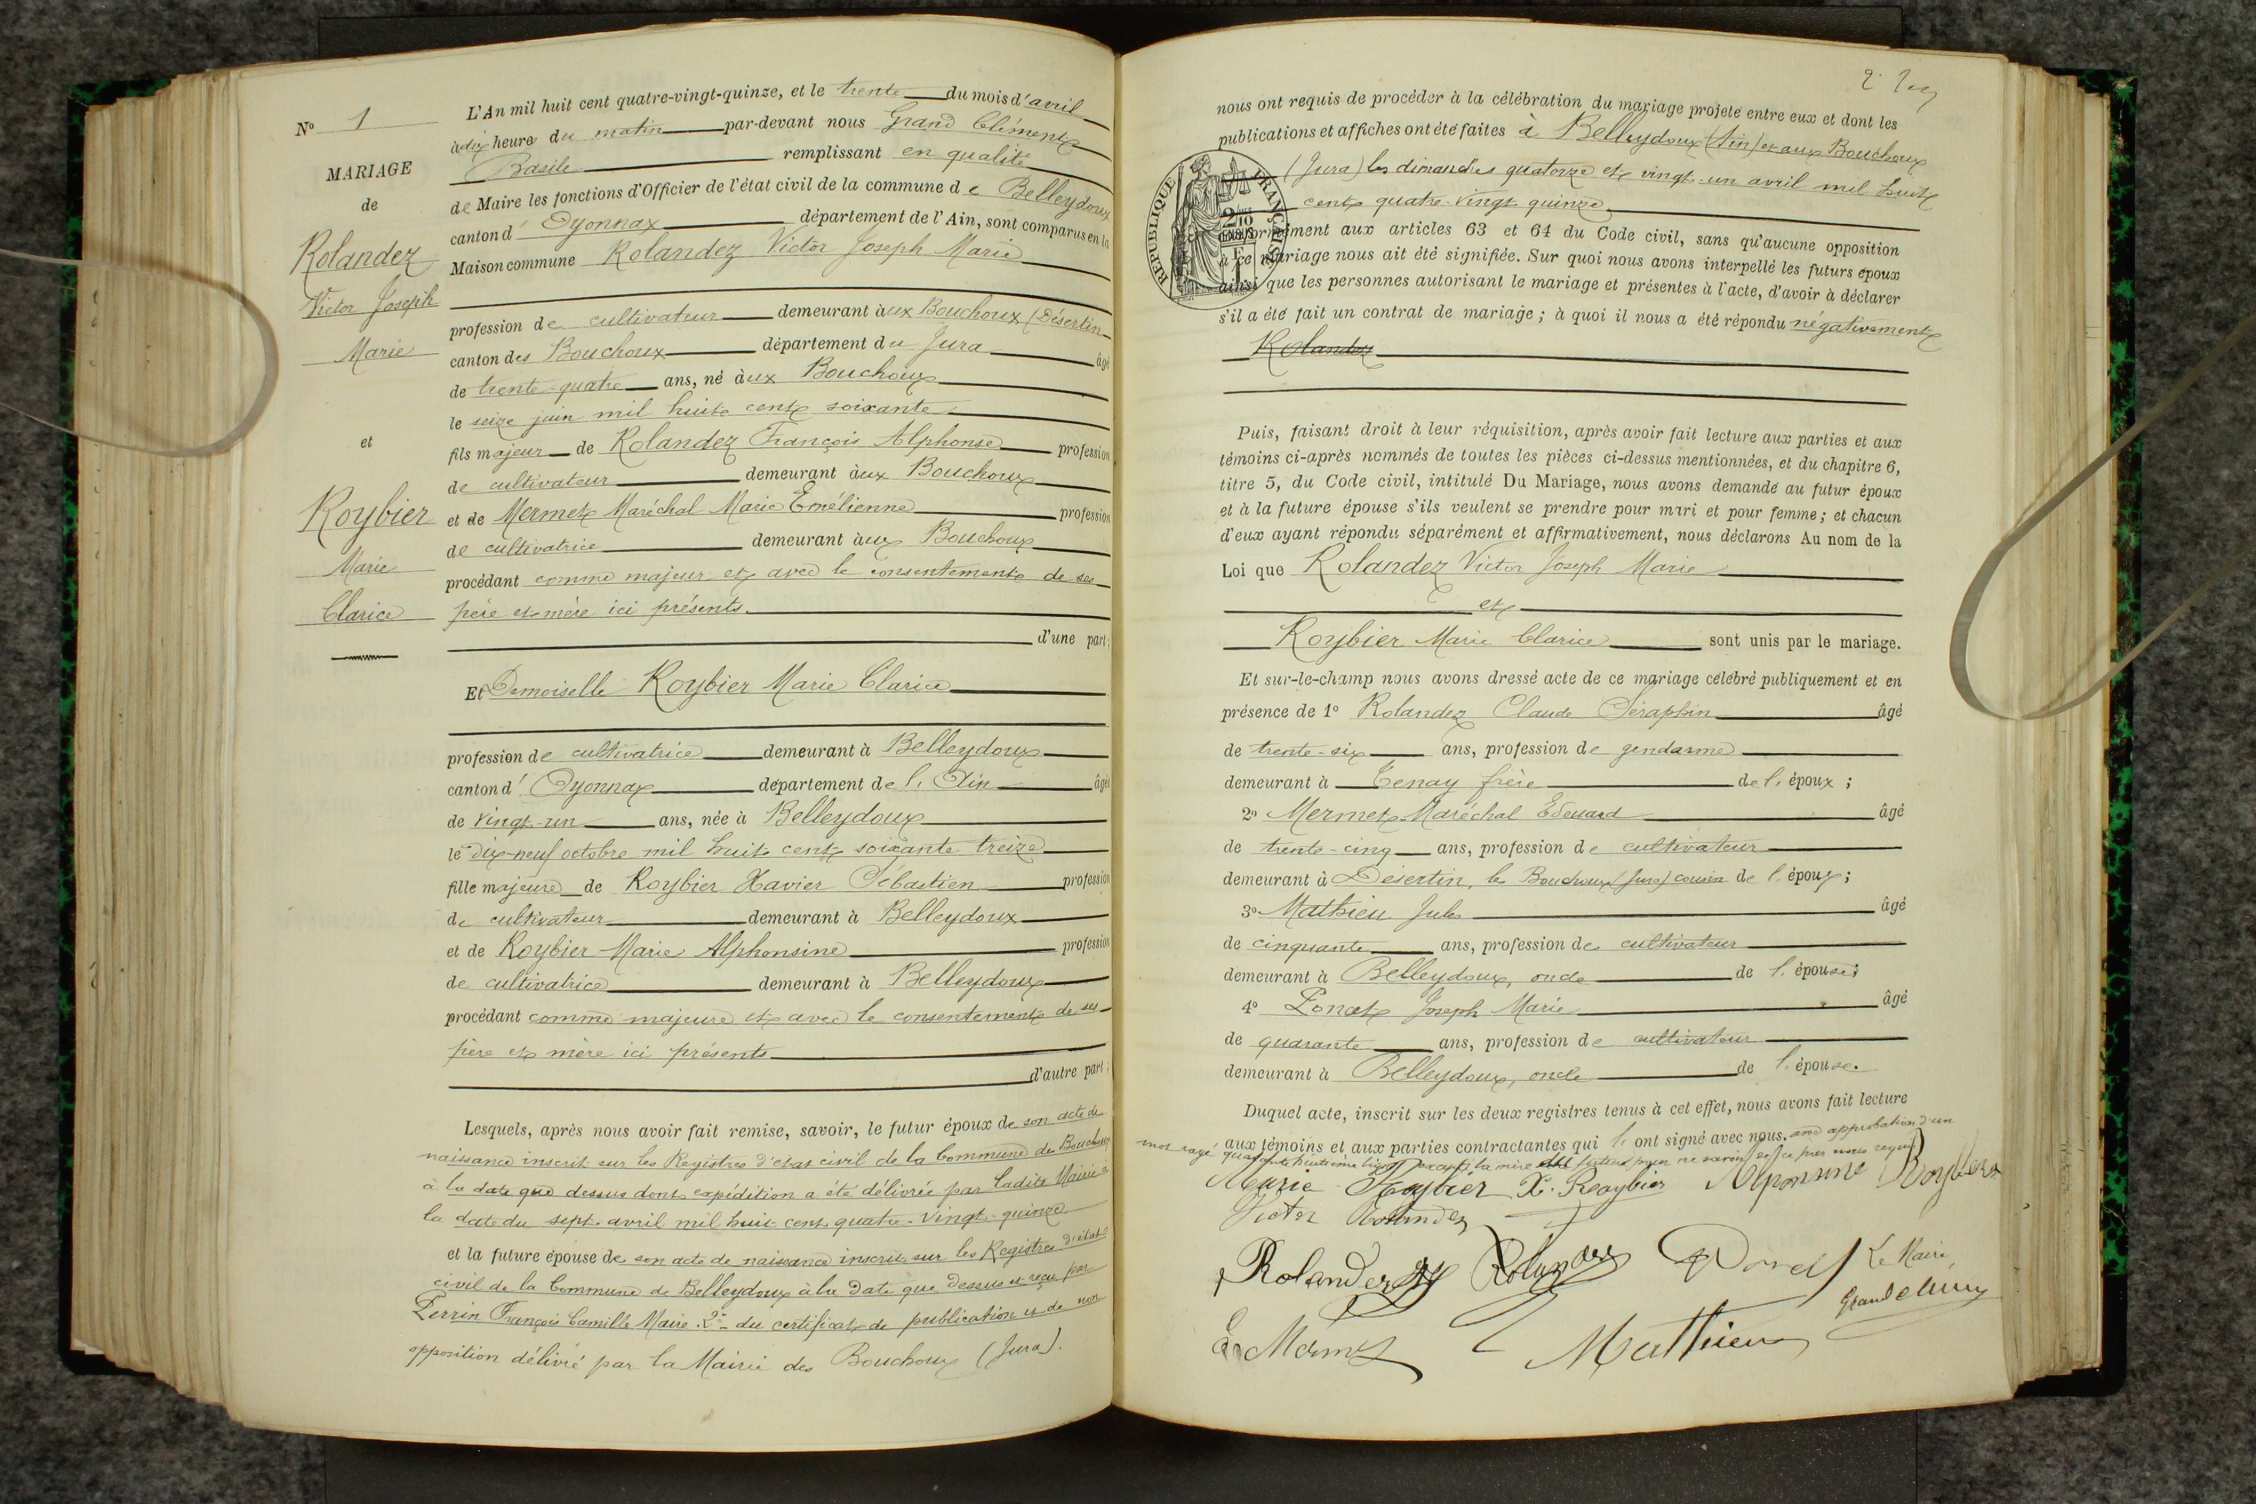 N° 1
MARIAGE
de
Rolandez
Victor Joseph
Marie
et
Roybier
Marie
Clarice
L'An mil huit cent quatre-vingt-quinze, et le trente du mois d'avril
à dix heure du matin par-devant nous Grand Clément
Basile remplissant en qualité
de Maire les fonctions d'Officier de l'état civil de la commune de Belleydoux
canton d'Oyonnax département de l'Ain, sont comparus en la
Maison commune Rolandez Victor Joseph Marie
profession de cultivateur demeurant aux Bouchoux (Désertin
canton des Bouchoux département du Jura âgé
de trente-quatre ans, né aux Bouchoux
le seize juin mil huit cent soixante
fils majeur de Rolandez François Alphonse profession
de cultivateur demeurant aux Bouchoux
et de Mermet Maréchal Marie Emélienne profession
de cultivatrice demeurant aux Bouchoux
procédant comme majeur et avec le consentement de ses
père et mère ici présents
d'une part;
Et Demoiselle Roybier Marie Clarice
profession de cultivatrice demeurant à Belleydoux
canton d'Oyonnax département de l'Ain âgée
de vingt-un ans, née à Belleydoux
le dix-neuf octobre mil huit cent soixante treize
fille majeure de Roybier Xavier Sébastien profession
de cultivateur demeurant à Belleydoux
et de Roybier Marie Alphonsine profession
de cultivatrice demeurant à Belleydoux
procédant comme majeure et avec le consentement de ses
père et mère ici présents
d'autre part;
Lesquels, après nous avoir fait remise, savoir, le futur époux de son acte de
naissance inscrit sur les Registres d'état civil de la Commune des Bouchoux
à la date que dessus dont expédition a été délivrée par ladite Mairie à
la date du sept avril mil huit cent quatre-vingt-quinze
et la future épouse de son acte de naissance inscrit sur les Registres d'état
civil de la Commune de Belleydoux à la date que dessus et reçu par
Perrin François Camille Maire. 2° du certificat de publication et de non
opposition délivré par la Mairie des Bouchoux (Jura).
nous ont requis de procéder à la célébration du mariage projeté entre eux et dont les
publications et affiches ont été faites à Belleydoux (Ain) et aux Bouchoux
(Jura) les dimanches quatorze et vingt-un avril mil huit
cent quatre-vingt quinze
REPUBLIQUE FRANÇAISE
2/10
EN SUS
conformément aux articles 63 et 64 du Code civil, sans qu'aucune opposition
à ce mariage nous ait été signifiée. Sur quoi nous avons interpellé les futurs époux
ainsi que les personnes autorisant le mariage et présentes à l'acte, d'avoir à déclarer
s'il a été fait un contrat de mariage; à quoi il nous a été répondu négativement
Rolandez
Puis, faisant droit à leur réquisition, après avoir fait lecture aux parties et aux
témoins ci-après nommés de toutes les pièces ci-dessus mentionnées, et du chapitre 6,
titre 5, du Code civil, intitulé Du Mariage, nous avons demandé au futur époux
et à la future épouse s'ils veulent se prendre pour mari et pour femme; et chacun
d'eux ayant répondu séparément et affirmativement, nous déclarons Au nom de la
Loi que Rolandez Victor Joseph Marie
et
Roybier Marie Clarice sont unis par le mariage.
Et sur-le-champ nous avons dressé acte de ce mariage célébré publiquement et en
présence de 1° Rolandez Claude Séraphin âgé
de trente-six ans, profession de gendarme
demeurant à Tenay frère de l'époux;
2° Mermet Maréchal Edouard âgé
de trente-cinq ans, profession de cultivateur
demeurant à Désertin, les Bouchoux (Jura) cousin de l'époux;
3° Mathieu Jules âgé
de cinquante ans, profession de cultivateur
demeurant à Belleydoux, oncle de l'épouse;
4° Ponat Joseph Marie âgé
de quarante ans, profession de cultivateur
demeurant à Belleydoux, oncle de l'épouse.
Duquel acte, inscrit sur les deux registres tenus à cet effet, nous avons fait lecture
aux témoins et aux parties contractantes qui l'ont signé avec nous. approbation d'un
mot rayé
Marie Roybier X. Roybier Alponsine Roybier
Victor Rolandez
Rolandez Rolandez Ponat Le Maire
Grand Clém
E. Mermet Mathieu